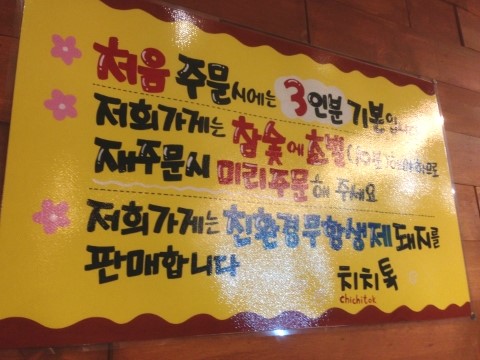 처음 주문시에는 3인분 기본입니다
저희가게는 참숯에 초벌
재주문시 미리주문해 주세요
저희가게는 친환경무항생제돼지를
판매합니다
치치톡
chichitok